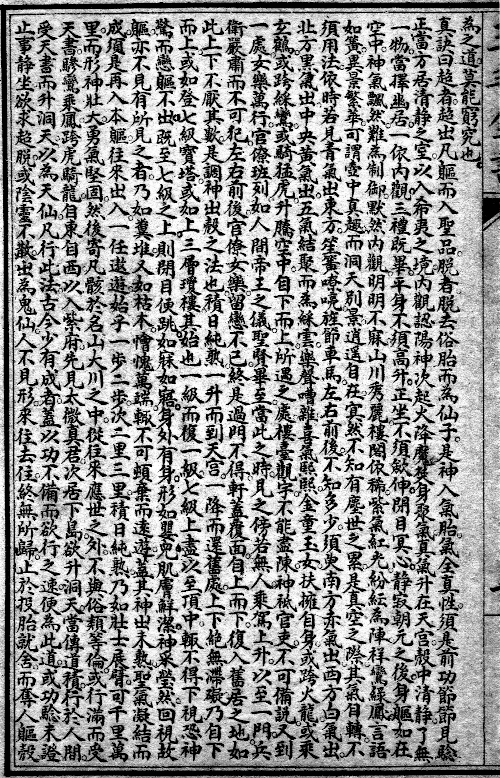 為之道莫能窮究也
真訣曰超者超出凡軀而入聖品脫者脫去俗胎而為仙子是神入氣胎氣全真性須是前功節節見驗
正當方居清静之室以入希夷之境內觀認陽神次起火降魔焚身聚氣真氣升在天宮殼中清静了無
一物當擇幽居一依內觀三禮既畢平身不須高升正坐不須歛伸閉目冥心静寂朝元之後身軀如在
空中神氣飄然難為制御默然內觀明明不寐山川秀麗樓閣依稀紫氣紅光紛紜為陣祥鸞綵鳳言語
如簧異景繁華可謂壺中真趣而洞天別景逍遙自在冥然不知有塵世之累是真空之際其氣自轉不
須用法依時若見青氣出東方笙簧嘹喨旌節車馬左右前後不知多少須臾南方赤氣出西方白氣出
北方黑氣出中央黃氣出五氣結聚而為綵雲樂聲嘈雜喜氣熙熙金童玉女扶擁自身或跨火龍或乘
玄鶴或跨綵鸞或騎猛虎升騰空中自下而上所遇之處樓臺觀宇不能盡陳神祗官吏不可備說又到
一處女樂萬行官僚班列如人間帝王之儀聖賢畢至當此之時見之傍若無人乘駕上升以至一門兵
衛嚴肅而不可犯左右前後官僚女樂留戀不已終是過門不得軒蓋覆面自上而下復入舊居之地如
此上下不厭其數是調神出殼之法也積日純熟一升而到天宮一降而還舊處上下絕無滯礙乃自下
而上或如登七級寶塔或如上三層瓊樓其始也一級而復一級七級上盡以至頂中輒不得下視恐神
驚而戀軀不出既至七級之上則閉目便跳如寐如寤身外有身形如嬰兒肌膚鮮潔神采瑩然回視故
軀亦不見有所見之者乃如糞堆又如枯木憎愧萬端輒不可頓棄而遠遊蓋其神出未熟聖氣凝結而
成須是再入本軀往來出入一任遨遊始乎一步二步次二里三里積日純熟乃如壯士展臂可千里萬
里而形神壯大勇氣堅固然後寄凡骸於名山大川之中從往來應世之外不與俗類等倫或行滿而受
天書驂鸞乘鳳跨虎騎龍自東自西以入紫府先見太微真君次居下島欲升洞天當傳道積行於人間
受天書而升洞天以為天仙凡行此法古今少有成者蓋以功不備而欲行之速便為此道或功驗未證
止事静坐欲求超脫或陰靈不散出為鬼仙人不見形來往去住終無所歸止於投胎就舍而奪人軀殼